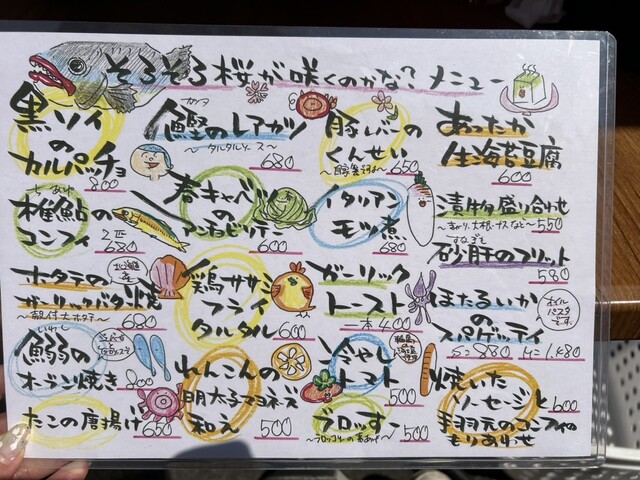 そろそろ桜が咲くのかな？メニュー
黒ソイ
の
カルパッチョ
800
カツオ
鰹のレアカツ
〜タルタルソース〜
680
豚レバーの
くんせい
650
あったか
生海苔豆腐
600
稚鮎の
コンフィ
2匹
680
春キャベツ
の
アンチョビソテー
600
イタリアン
モツ煮
680
漬物盛り合わせ
550
砂肝のフリット
580
ホタテの
ガーリックバタ焼
〜殻付大ホタテ〜
680
北海道産
鶏ササミ
フライ
タルタル
600
ガーリック
トースト
一本400
ほたるいか
の
スパゲッティ
S=880 M=1,480
オイルパスタです。
いわし
鰯の
オーブン焼き
800
れんこんの
明太子マヨネーズ
和え
500
冷やし
トマト
500
焼いた
ソーセージと
手羽元のコンフィの
もりあわせ
600
たこの唐揚げ
650
ブロッすー
500